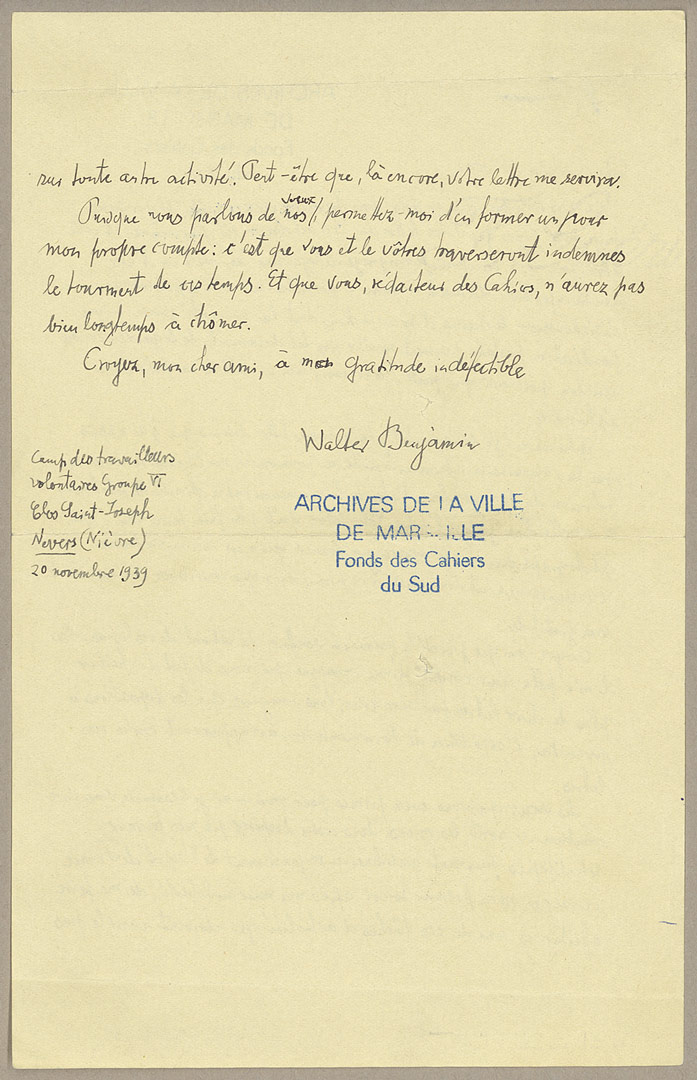 sur toute autre activité. Peut-être que, là encore, votre lettre me servira.
Puisque nous parlons de nos vœux, permettez-moi d'en former un pour
mon propre compte: c'est que vous et le vôtres traverseront indemnes
le tourment de ces temps. Et que vous, rédacteur des Cahiers, n'aurez pas
bien longtemps à chômer.
Croyez, mon cher ami, à ma gratitude indéfectible
Walter Benjamin
Camp des travailleurs
volontaires Groupe VI
Clos Saint-Joseph
Nevers (Nièvre)
20 novembre 1939
ARCHIVES DE LA VILLE
DE MARSEILLE
Fonds des Cahiers
du Sud